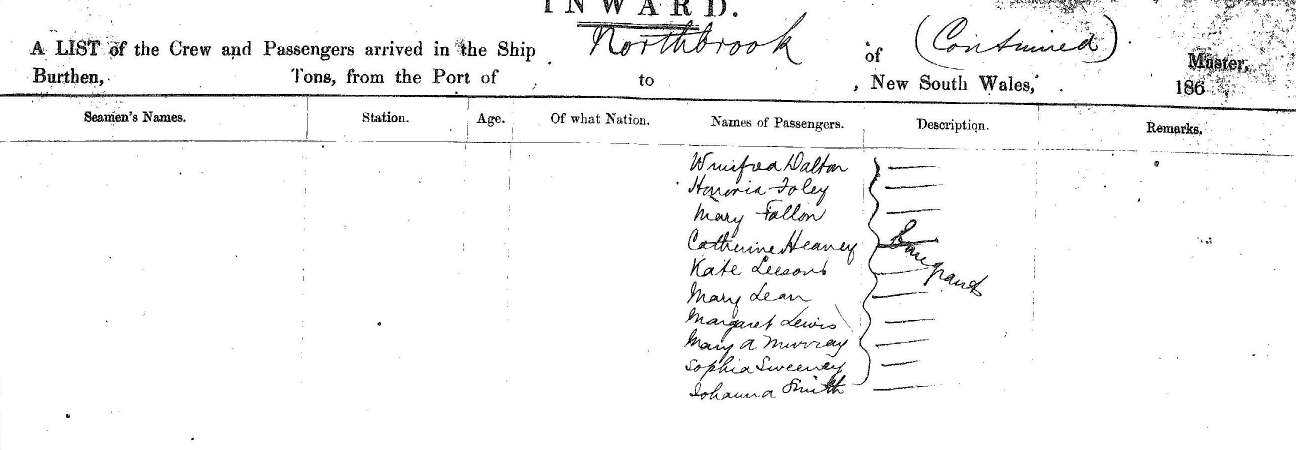 INWARD.
A LIST of the Crew and Passengers arrived in the Ship Northbrook of (Continued) Muster,
Burthen, Tons, from the Port of to , New South Wales, 186
Seamen's Names. Station. Age. Of what Nation. Names of Passengers. Description. Remarks.
Winifred Dalton
Honoria Foley
Mary Fallon
Catherine Heaney
Kate Leesons
Mary Lean
Margaret Lewis
Mary A Murray
Sophia Sweeney
Johanna Smith